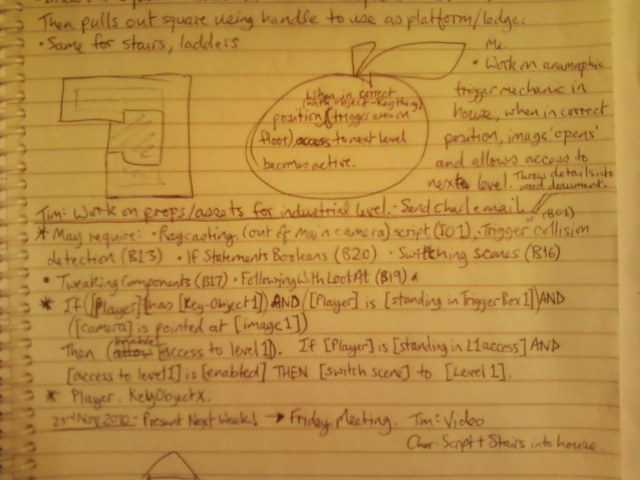 Then pulls out square using handle to use as platform/ledge.
• Same for stairs, ladders
When in correct
(with object-Key thing)
position (trigger area on
floor) access to next level
becomes active.
Me.
• Work on anamorphic
trigger mechanic in
house, when in correct
position, image 'opens'
and allows access to
next level. Throw details into
word document.
Tim: Work on props/assets for industrial level. • Send Charl email.
* May require: • Raycasting (out of main camera) script (I01), • Trigger collision (B01)
detection (B13) • If Statements Booleans (B20) • Switching scenes (B16)
• Tweaking Components (B17) • Following With LookAt (B19)
* If ([Player] has [Key-Object1]) AND ([Player] is [standing in TriggerBox1]) AND
([camera] is pointed at [image1])
Then (enable [access to level1]). If [Player] is [standing in L1access] AND
[access to level1] is [enabled] THEN [switch scene] to [Level1].
* Player. KeyObjectX.
23rd Nov 2010 - Present Next Week! → Friday Meeting. Tim: Video
Char: Script + Stairs into house